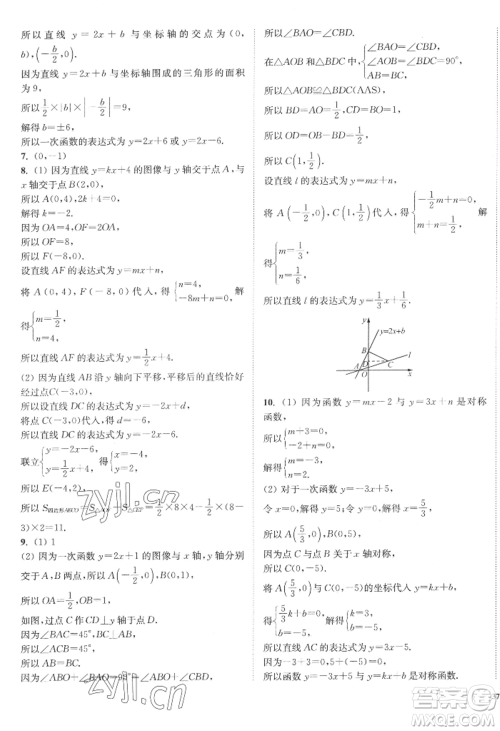 所以直线 y=2x+b 与坐标轴的交点为(0,
b),(-b/2,0).
因为直线 y=2x+b 与坐标轴围成的三角形的面积
为9,
所以 1/2×|b|×|-b/2|=9,
解得 b=±6,
所以一次函数的表达式为 y=2x+6 或 y=2x-6.
7. (0,-1)
8. (1) 因为直线 y=kx+4 的图像与 y 轴交于点 A,与
x 轴交于点 B(2,0),
所以 2k+4=0,解得 k=-2,
所以直线 AB 的表达式为 y=-2x+4.
因为 OA=4,OF=2OA,
所以 OF=8,
所以 F(-8,0).
设直线 AF 的表达式为 y=mx+n,
将 A(0,4),F(-8,0)代入,得{n=4, -8m+n=0, 解
得{m=1/2, n=4,
所以直线 AF 的表达式为 y=1/2x+4.
(2) 因为直线 AB 向下平移,平移后的直线恰好
经过点 C(-3,0),
所以设直线 DC 的表达式为 y=-2x+d,
将点 C(-3,0)代入,得 d=-6,
所以直线 DC 的表达式为 y=-2x-6,
联立{y=-2x-6, y=1/2x+4, 得{x=-4, y=2,
所以 E(-4,2),
3)×2=11.
9. (1) 1
(2) 因为一次函数 y=2x+1 的图像与 x 轴、y 轴分别
交于 A、B 两点,
所以 A(-1/2,0),B(0,1),
所以 OA=1/2,OB=1.
如图,过点 C 作 CD⊥y 轴于点 D.
因为∠BAC=45°,
所以∠ACB=45°,
所以 AB=BC.
因为∠ABO+∠BAO=90°,∠ABO+∠CBD=90°,
所以∠BAO=∠CBD.
在△AOB 和△BDC 中,{∠BAO=∠CBD, ∠AOB=∠BDC=90°, AB=BC,
所以△AOB≌△BDC(AAS),
所以 BD=AO=1/2,CD=OB=1,
所以 OD=OB-BD=1/2,
所以 C(1,1/2).
设直线 l 的表达式为 y=mx+n,
将 A(-1/2,0),C(1,1/2)代入,得{-1/2m+n=0, m+n=1/2, 解
得{m=1/3, n=1/6,
所以直线 l 的表达式为 y=1/3x+1/6.
y
y=2x+b
B
D
C
A
O
x
10. (1) 因为函数 y=mx-2 与 y=3x+n 是对称
函数,
所以{m+3=0, -2+n=0, 解得{m=-3, n=2.
(2) 对于一次函数 y=-3x+5,
令 x=0,则 y=5,令 y=0,则 x=5/3,
所以 A(5/3,0),B(0,5).
因为点 C 与点 B 关于 x 轴对称,
所以 C(0,-5).
将 A(5/3,0),C(0,-5)的坐标代入 y=kx+b,
得{5/3k+b=0, b=-5, 解得{k=3, b=-5,
所以一次函数的表达式为 y=3x-5.
因为-3+3=0,5+(-5)=0,
所以函数 y=kx+b 与 y=-3x+5 是对称函数.
zyjl.cn
zyjl.cn